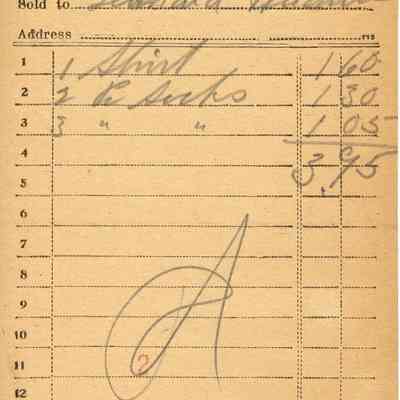 Sold to
Address
1 1 Shirt 1 60
2 2 Pr Socks 1 30
3 3 " " 1 05
4 3.95
5
6
7
8
9
10
11 2
12